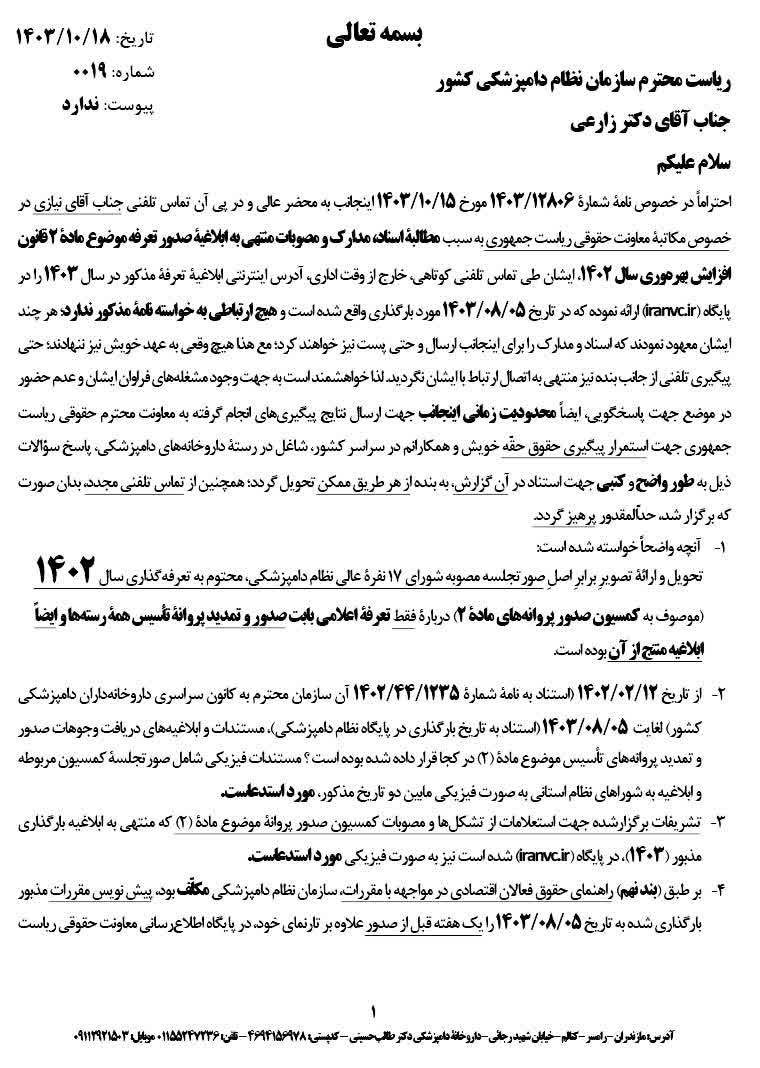 بسمه تعالی
تاریخ: ۱۴۰۳/۱۰/۱۸
شماره: ۰۰۱۹
پیوست: ندارد
ریاست محترم سازمان نظام دامپزشکی کشور
جناب آقای دکتر زارعی
سلام علیکم
احتراماً در خصوص نامهٔ شمارهٔ ۱۴۰۳/۱۲۸۰۶ مورخ ۱۴۰۳/۱۰/۱۵ اینجانب به محضر عالی و در پی آن تماس تلفنی جناب آقای نیازی در
خصوص مکاتبهٔ معاونت حقوقی ریاست جمهوری به سبب مطالبهٔ اسناد، مدارک و مصوبات منتهی به ابلاغیهٔ صدور تعرفه موضوع مادهٔ ۲ قانون
افزایش بهره‌وری سال ۱۴۰۲، ایشان طی تماس تلفنی کوتاهی، خارج از وقت اداری، آدرس اینترنتی ابلاغیهٔ تعرفهٔ مذکور در سال ۱۴۰۳ را در
پایگاه (iranvc.ir) ارائه نموده که در تاریخ ۱۴۰۳/۰۸/۰۵ مورد بارگذاری واقع شده است و هیچ ارتباطی به خواسته نامهٔ مذکور ندارد؛ هر چند
ایشان معهود نمودند که اسناد و مدارک را برای اینجانب ارسال و حتی پست نیز خواهند کرد؛ مع هذا هیچ وقعی به عهد خویش نیز ننهادند؛ حتی
پیگیری تلفنی از جانب بنده نیز منتهی به اتصال ارتباط با ایشان نگردید. لذا خواهشمند است به جهت وجود مشغله‌های فراوان ایشان و عدم حضور
در موضع جهت پاسخگویی، ایضاً محدودیت زمانی اینجانب جهت ارسال نتایج پیگیری‌های انجام گرفته به معاونت محترم حقوقی ریاست
جمهوری جهت استمرار پیگیری حقوق حقّه خویش و همکارانم در سراسر کشور، شاغل در رستهٔ داروخانه‌های دامپزشکی، پاسخ سؤالات
ذیل به طور واضح و کتبی جهت استناد در آن گزارش، به بنده از هر طریق ممکن تحویل گردد؛ همچنین از تماس تلفنی مجدد، بدان صورت
که برگزار شد، حدّالمقدور پرهیز گردد.
۱- آنچه واضحاً خواسته شده است:
تحویل و ارائهٔ تصویرِ برابرِ اصلِ صورتجلسه مصوبه شورای ۱۷ نفرهٔ عالی نظام دامپزشکی، محتوم به تعرفه‌گذاری سال ۱۴۰۲
(موصوف به کمسیون صدور پروانه‌های مادهٔ ۲) دربارهٔ فقط تعرفهٔ اعلامی بابت صدور و تمدید پروانهٔ تأسیس همهٔ رسته‌ها و ایضاً
ابلاغیه منتج از آن بوده است.
۲- از تاریخ ۱۴۰۲/۰۲/۱۲ (استناد به نامهٔ شمارهٔ ۱۴۰۲/۴۴/۱۲۳۵ آن سازمان محترم به کانون سراسری داروخانه‌داران دامپزشکی
کشور) لغایت ۱۴۰۳/۰۸/۰۵ (استناد به تاریخ بارگذاری در پایگاه نظام دامپزشکی)، مستندات و ابلاغیه‌های دریافت وجوهات صدور
و تمدید پروانه‌های تأسیس موضوع مادهٔ (۲) در کجا قرار داده شده بوده است؟ مستندات فیزیکی شامل صورتجلسهٔ کمسیون مربوطه
و ابلاغیه به شوراهای نظام استانی به صورت فیزیکی مابین دو تاریخ مذکور، مورد استدعاست.
۳- تشریفات برگزارشده جهت استعلامات از تشکل‌ها و مصوبات کمسیون صدور پروانهٔ موضوع مادهٔ (۲) که منتهی به ابلاغیه بارگذاری
مذبور (۱۴۰۳)، در پایگاه (iranvc.ir) شده است نیز به صورت فیزیکی مورد استدعاست.
۴- بر طبق (بند نهم) راهنمای حقوق فعالان اقتصادی در مواجهه با مقررات، سازمان نظام دامپزشکی مکلّف بود، پیش نویس مقررات مذبور
بارگذاری شده به تاریخ ۱۴۰۳/۰۸/۰۵ را یک هفته قبل از صدور علاوه بر تارنمای خود، در پایگاه اطلاع‌رسانی معاونت حقوقی ریاست
۱
آدرس: مازندران – رامسر – کتالم – خیابان شهید رجائی – داروخانهٔ دامپزشکی دکتر طالب‌حسینی – کدپستی: ۴۶۹۴۱۵۶۹۷۸ – تلفن: ۰۱۱۵۵۲۴۷۲۳۶ موبایل: ۰۹۱۱۲۹۲۱۵۰۳